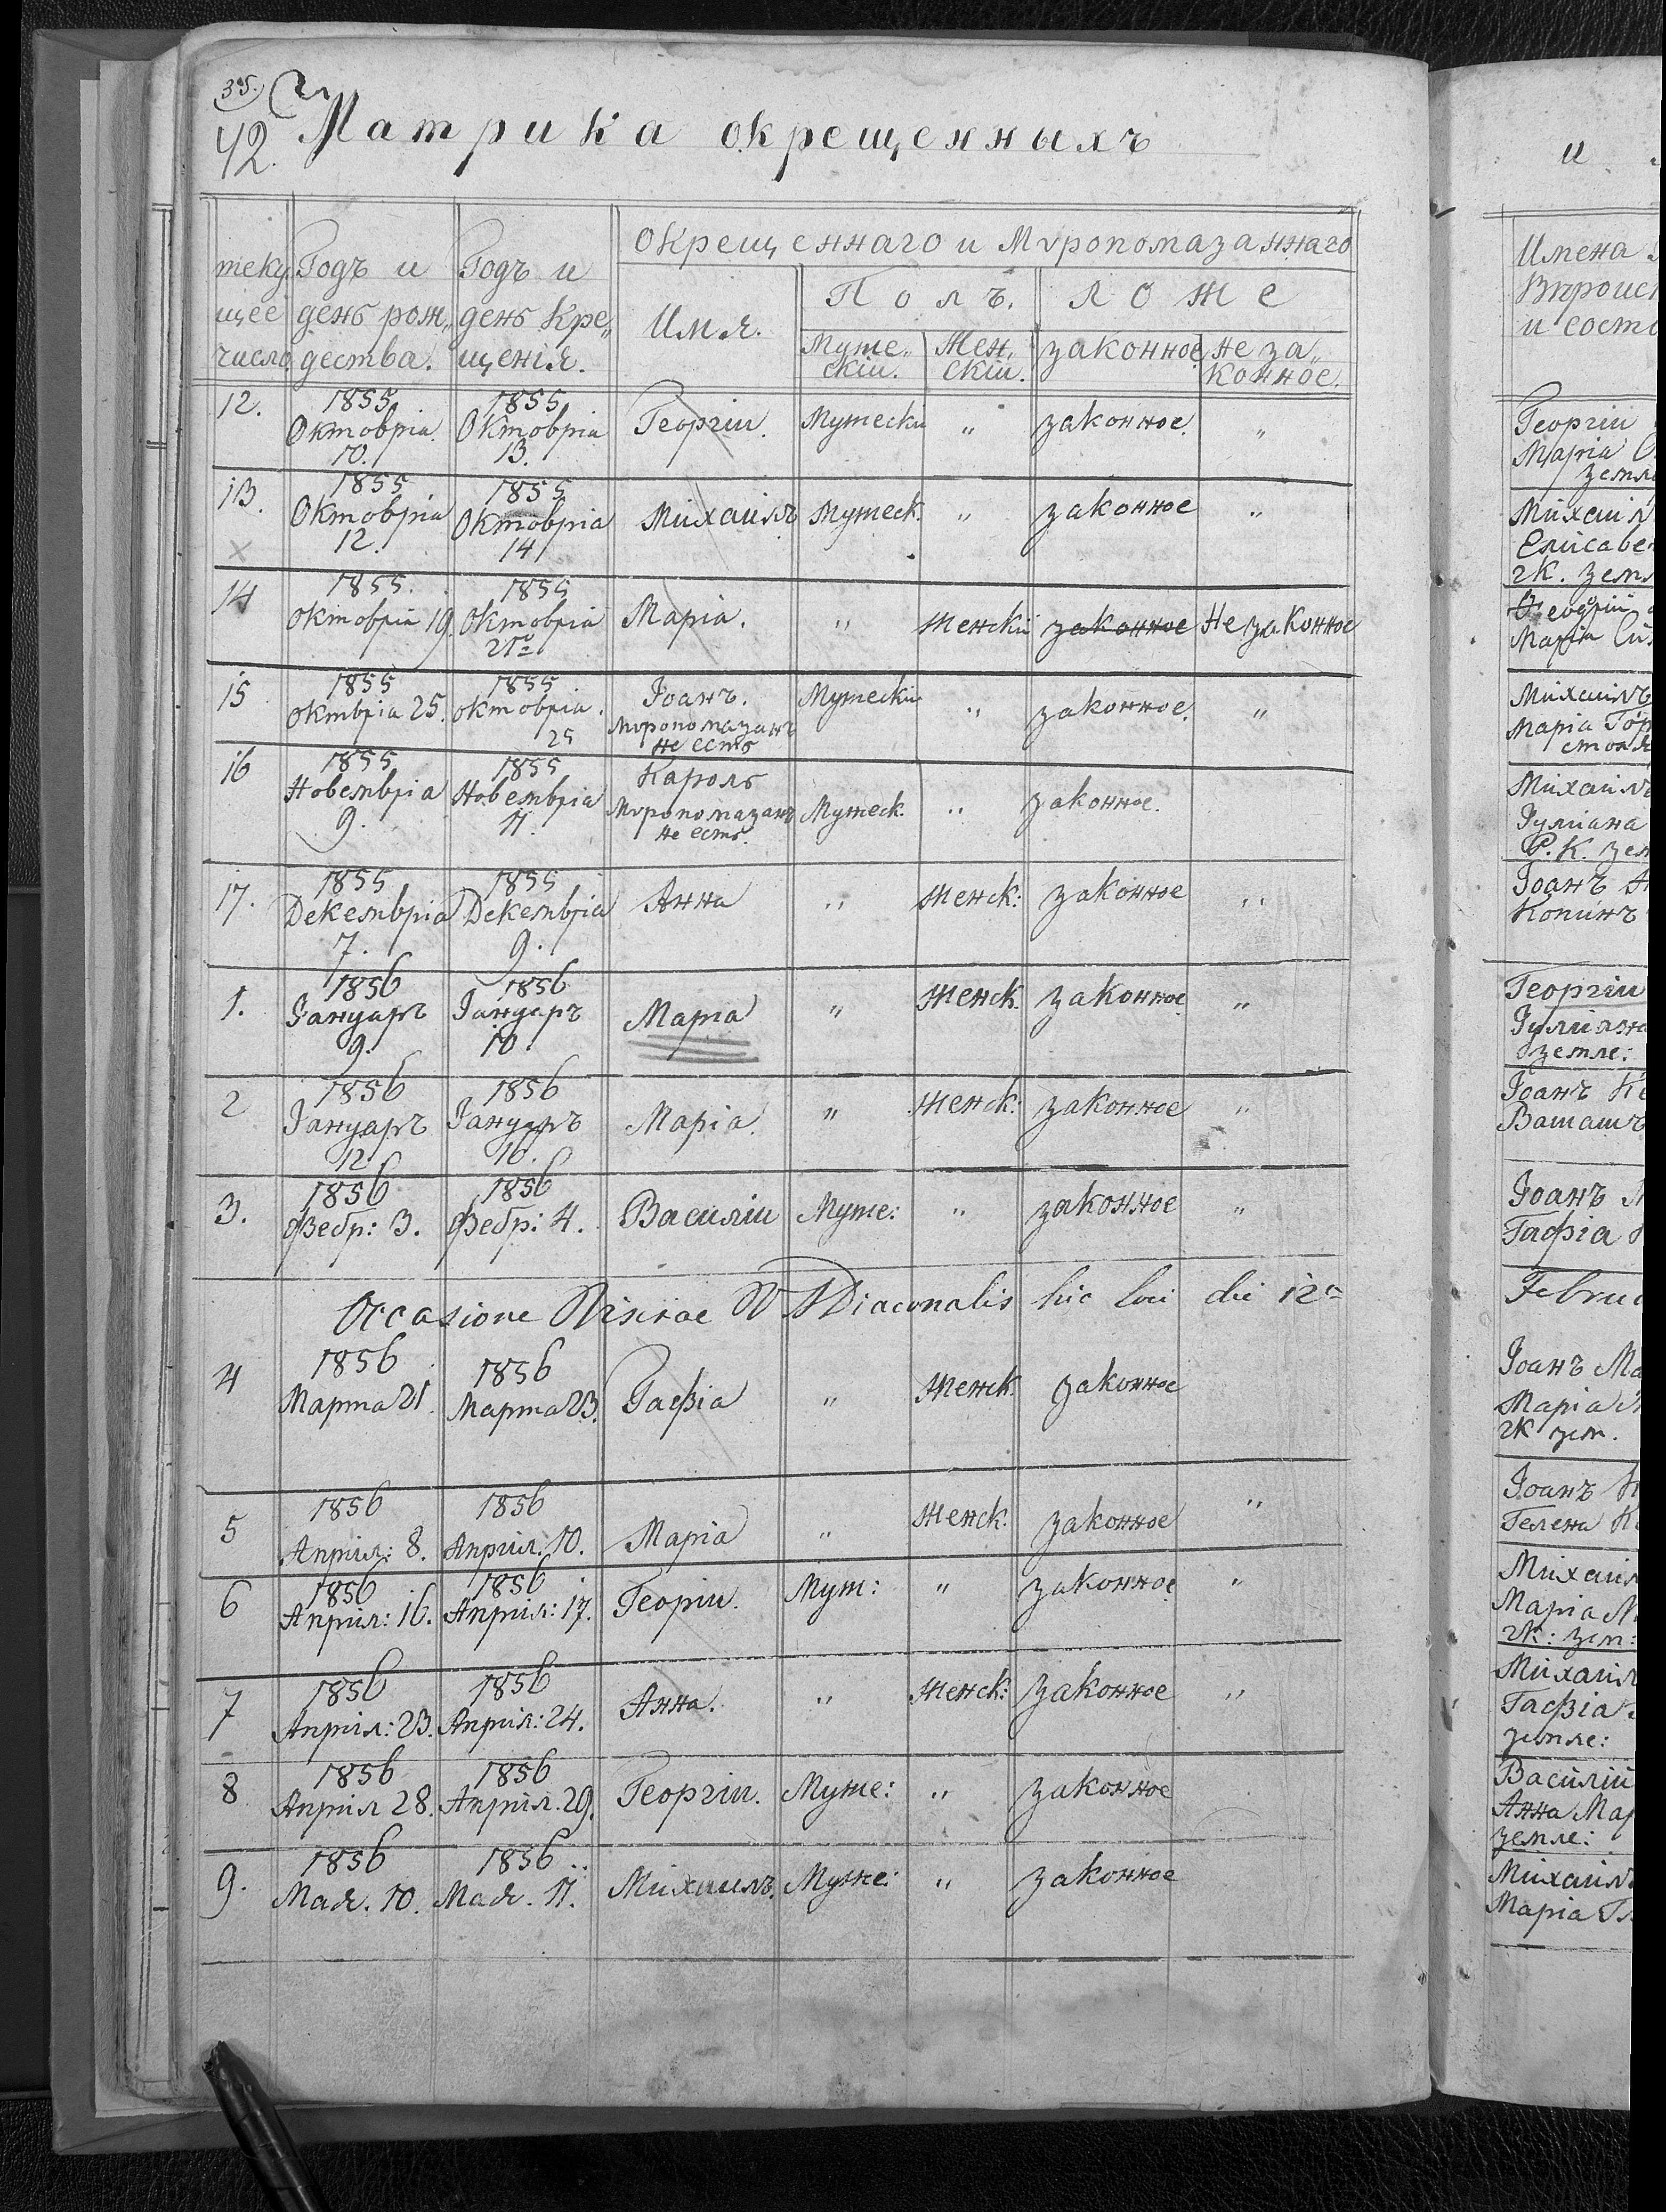 35.
42.
Матрика окрещенныхъ
теку
щее
число.
Годъ и
день рож„
дества.
Годъ и
день кре„
щенія.
Окрещеннаго и Мѵропомазаннаго
Имя.
Полъ.
ложе
Муже„
скіи.
Жен„
скіи.
законное
не за„
конное.
12. 1855 Октовріа 10. 1855 Октовріа 13. Георгіи. Мужески „ законное. „
13. 1855 Октовріа 12. 1855 Октовріа 14 Михаилъ Мужеск. „ законное „
14 1855. Октовріа 19. 1855 Октовріа 21го Маріа. „ Женскіи законное Не законное
15 1855 Октвріа 25. 1855 Октовріа. 25 Іоанъ. Мѵропомазанъ не есть Мужескіи „ законное. „
16 1855 Новемвріа 9. 1855 Новемвріа 11. Кароль Мѵропомазанъ не есть. Мужеск. „ законное.
17. 1855 Декемвріа 7. 1855 Декемвріа 9. Анна „ Женск: законное „
1. 1856 Іануаръ 9. 1856 Іануаръ 10 Маріа „ Женск. законное „
2 1856 Іануаръ 12. 1856 Іануаръ 16. Маріа. „ Женск: законное „
3. 1856 Фебр: 3. 1856 Фебр: 4. Василіи Муже: „ законное „
Occasione Visitae V ADiaconalis hic loci die 12a
4 1856 Марта 21. 1856 Марта 23. Гафіа „ Женск. законное
5 1856 Апріл: 8. 1856 Апріл. 10. Маріа „ Женск. законное „
6 1856 Апріл: 16. 1856 Апріл: 17. Георіи. Муж: „ законное „
7 1856 Апріл: 23. 1856 Апріл: 24. Анна. „ Женск: законное „
8 1856 Апріл 28. 1856 Апріл. 29. Георгіи. Муже: „ законное
9. 1856 Мая. 10. 1856 Мая. 11. Михаилъ. Муже: „ законное
и
Имена
и
Георгіи
Маріа
Михаил
гк.
Маріа
Михаилъ
Маріа
Михаилъ
Іуліана
Р.К.
Іоанъ
Копинъ
Георгіи
Іуліана
земле:
Іоанъ
Ваташъ
Іоанъ
Гафіа
Februa
Іоанъ
Маріа
гк зем.
Іоанъ
Гелена
Михаил
Маріа
гк: зем:
Михаил
Гафіа
земле:
Василіи
Анна Мар
земле:
Михаил
Маріа